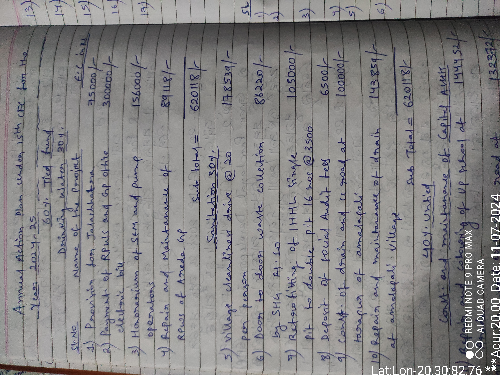 Annual Action Plan under 15th CFC for the
Year 2024-25
60% Tied fund
Drinking water 30%
Sl.No Name of the Project Est. Cost
1) Provision for Jalachhatra 75000/-
2) Payment of RPWS and GP office 300000/-
electric bill
3) Honorarium of SEM and pump 156000/-
operators
4) Repair and maintenance of 89118/-
RPWS of GP
Sub total = 620118/-
Sanitation 30%
5) Village cleanliness drive @ 20 178539/-
per person
6) Door to door waste collection 86220/-
by SHG
7) Retrofitting of IHHL Single 105000/-
pit to double pit @ 3500
8) Deposit of Social Audit fees 6500/-
9) Const of drain and CC road at 100000/-
of amodapali
10) Repair and maintenance of drain 143859/-
at amodapali village
Sub Total = 620118/-
40% Untied
Const. and maintenance of Capital asset
and of UP School at 199452/-
132372/-
13)
14)
15)
16)
17)
1)
2)
3)
4)
5)
6)
REDMI NOTE 9 PRO MAX
AI QUAD CAMERA
Lat Lon-20.30,82.76
**Agur2000 Date,11-07-2024